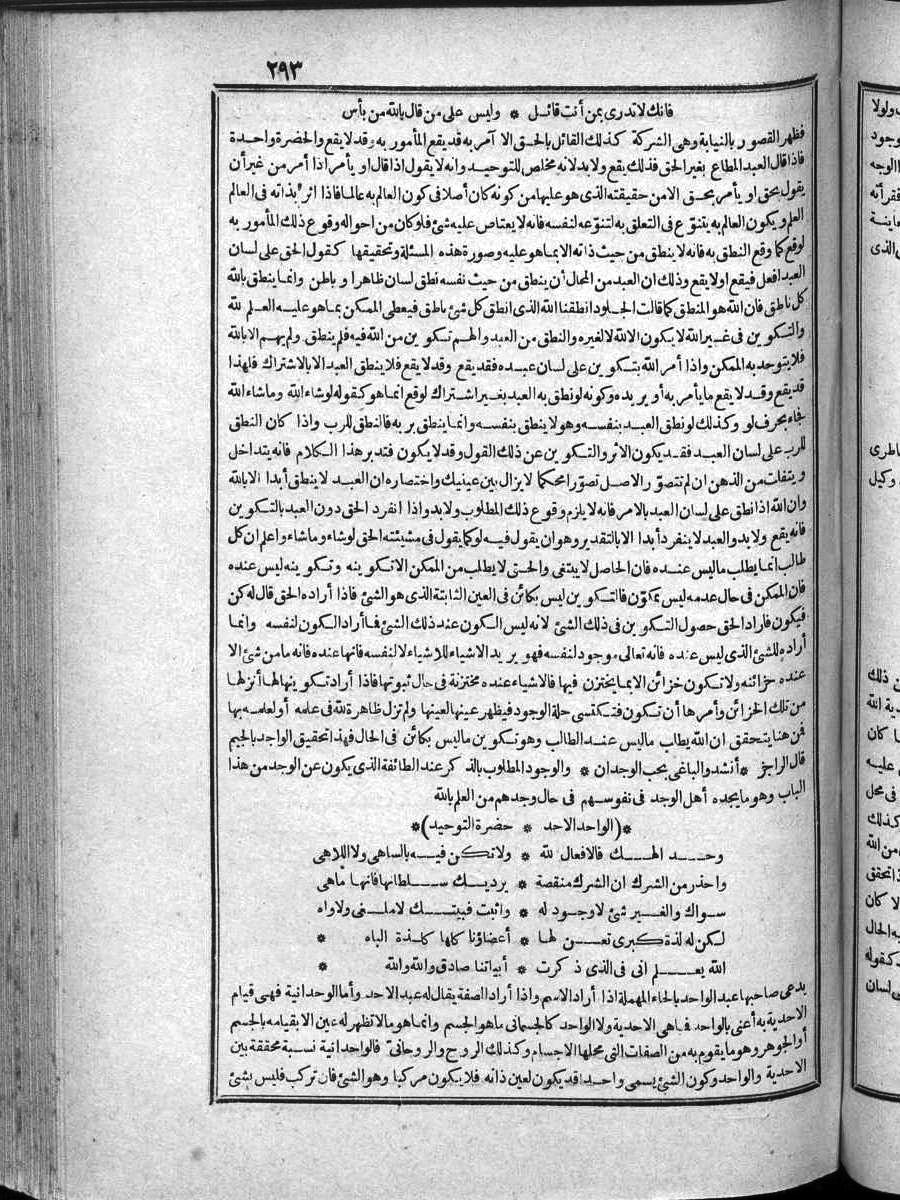 ٢٩٣
فانك لا تدرى بمن أنت قائل * وليس على من قال بالله من بأس
فظهر القصور بالنيابة وهى الشركة كذلك القائل بالحق الا آمر به قد يقع المأمور به وقد لا يقع والحضرة واحدة
فاذا قال العبد المطاع بغير الحق فذلك يقع ولا بد لانه مخلص للتوحيد وانه لا يقول اذا قال او يأمر اذا أمر من غير أن
يقول بحق او يأمر بحق الا من حقيقته الذى هو عليها من كونه كان أصلا فى كون العالم به عالما فاذا اثر بذاته فى العالم
العلم ويكون العالم به يتنوّع فى التعلق به لتنوّعه لنفسه فانه لا يعتاص عليه شئ فلو كان من احواله وقوع ذلك المأمور به
لوقع كما وقع النطق به فانه لا ينطق من حيث ذاته الا بما هو عليه وصورة هذه المسئلة وتحقيقها كقول الحق على لسان
العبد افعل فيقع اولا يقع وذلك ان العبد من المحال أن ينطق من حيث نفسه نطق لسان ظاهرا و باطن وانما ينطق بالله
كل ناطق فان الله هو المنطق كما قالت الجلود انطقنا الله الذى انطق كل شئ ناطق فيعطى الممكن بما هو عليه العلم لله
والتكوين فى غير الله لا يكون الا لله لا لغيره والنطق من العبد والهم تكوين من الله فيه فلم ينطق ولم يهم الا بالله
فلا يتوحد به الممكن واذا أمر الله بتكوين على لسان عبده فقد يقع وقد لا يقع فلا ينطق العبد الا بالاشتراك فلهذا
قد يقع وقد لا يقع ما يأمر به أو يريده وكونه لو نطق به العبد بغير اشتراك لوقع انما هو كقوله لو شاء الله وما شاء الله
فجاء بحرف لو وكذلك لو نطق العبد بنفسه وهو لا ينطق بنفسه وانما ينطق بربه فالنطق للرب واذا كان النطق
للرب على لسان العبد فقد يكون الاثر والتكوين عن ذلك القول وقد لا يكون فتدبر هذا الكلام فانه يتداخل
ويتفلت من الذهن ان لم تتصوّر الاصل تصوّرا محكما لا يزال بين عينيك واختصاره ان العبد لا ينطق أبدا الا بالله
وان الله اذا نطق على لسان العبد بالامر فانه لا يلزم وقوع ذلك المطلوب ولا بد واذا انفرد الحق دون العبد بالتكوين
فانه يقع ولا بد والعبد لا ينفرد أبدا الا بالتقدير وهو ان يقول فيه لو كما يقول فى مشيئته الحق لو شاء وما شاء واعلم ان كل
طالب انما يطلب ما ليس عنده فان الحاصل لا يبتغى والحق لا يطلب من الممكن الا تكوينه وتكوينه ليس عنده
فان الممكن فى حال عدمه ليس بمكوّن فالتكوين ليس بكائن فى العين الثابتة الذى هو الشئ فاذا أراده الحق قال له كن
فيكون فاراد الحق حصول التكوين فى ذلك الشئ لانه ليس الكون عند ذلك الشئ فما أراد الكون لنفسه وانما
أراده للشئ الذى ليس عنده فانه تعالى موجود لنفسه فهو يريد الاشياء للاشياء لا لنفسه فانها عنده فانه ما من شئ الا
عنده خزائنه ولا تكون خزائن الا بما يختزن فيها فالاشياء عنده مختزنة فى حال ثبوتها فاذا أراد تكوينها لها أنزلها
من تلك الخزائن وأمرها أن تكون فتكتسى حلة الوجود فيظهر عينها لعينها ولم تزل ظاهرة لله فى علمه أو لعلمه بها
فمن هنا يتحقق ان الله يطلب ما ليس عند الطالب وهو تكوين ما ليس بكائن فى الحال فهذا تحقيق الواجد بالجيم
قال الراجز * أنشد والباغى يحب الوجدان * والوجود المطلوب بالذكر عند الطائفة الذى يكون عن الوجد من هذا
الباب وهو ما يجده أهل الوجد فى نفوسهم فى حال وجدهم من العلم بالله
*(الواحد الاحد * حضرة التوحيد)*
وحد الهك فالافعال لله * ولا تكن فيه بالساهى ولا اللاهى
واحذر من الشرك ان الشرك منقصة * يرديك سلطانها فانها ماهى
سواك والغير شئ لا وجود له * واثبت فبيتك لا ملغى ولا واه
لكن له لذة كبرى تعن لها * أعضاؤنا كلها كلذة الباه *
الله يعلم انى فى الذى ذكرت * أبياتنا صادق والله والله *
يدعى صاحبها عبد الواحد بالحاء المهملة اذا أراد الاسم واذا أراد الصفة يقال له عبد الاحد وأما الوحدانية فهى قيام
الاحدية به أعنى بالواحد فما هى الاحدية ولا الواحد كالجسمانى ما هو الجسم وانما هو ما لا تظهر له عين الا بقيامه بالجسم
أو الجوهر وهو ما يقوم به من الصفات التى محلها الاجسام وكذلك الروح والروحانى فالواحدانية نسبة محققة بين
الاحدية والواحد وكون الشئ يسمى واحدا قد يكون لعين ذاته فلا يكون مركبا وهو الشئ فان تركب فليس بشئ